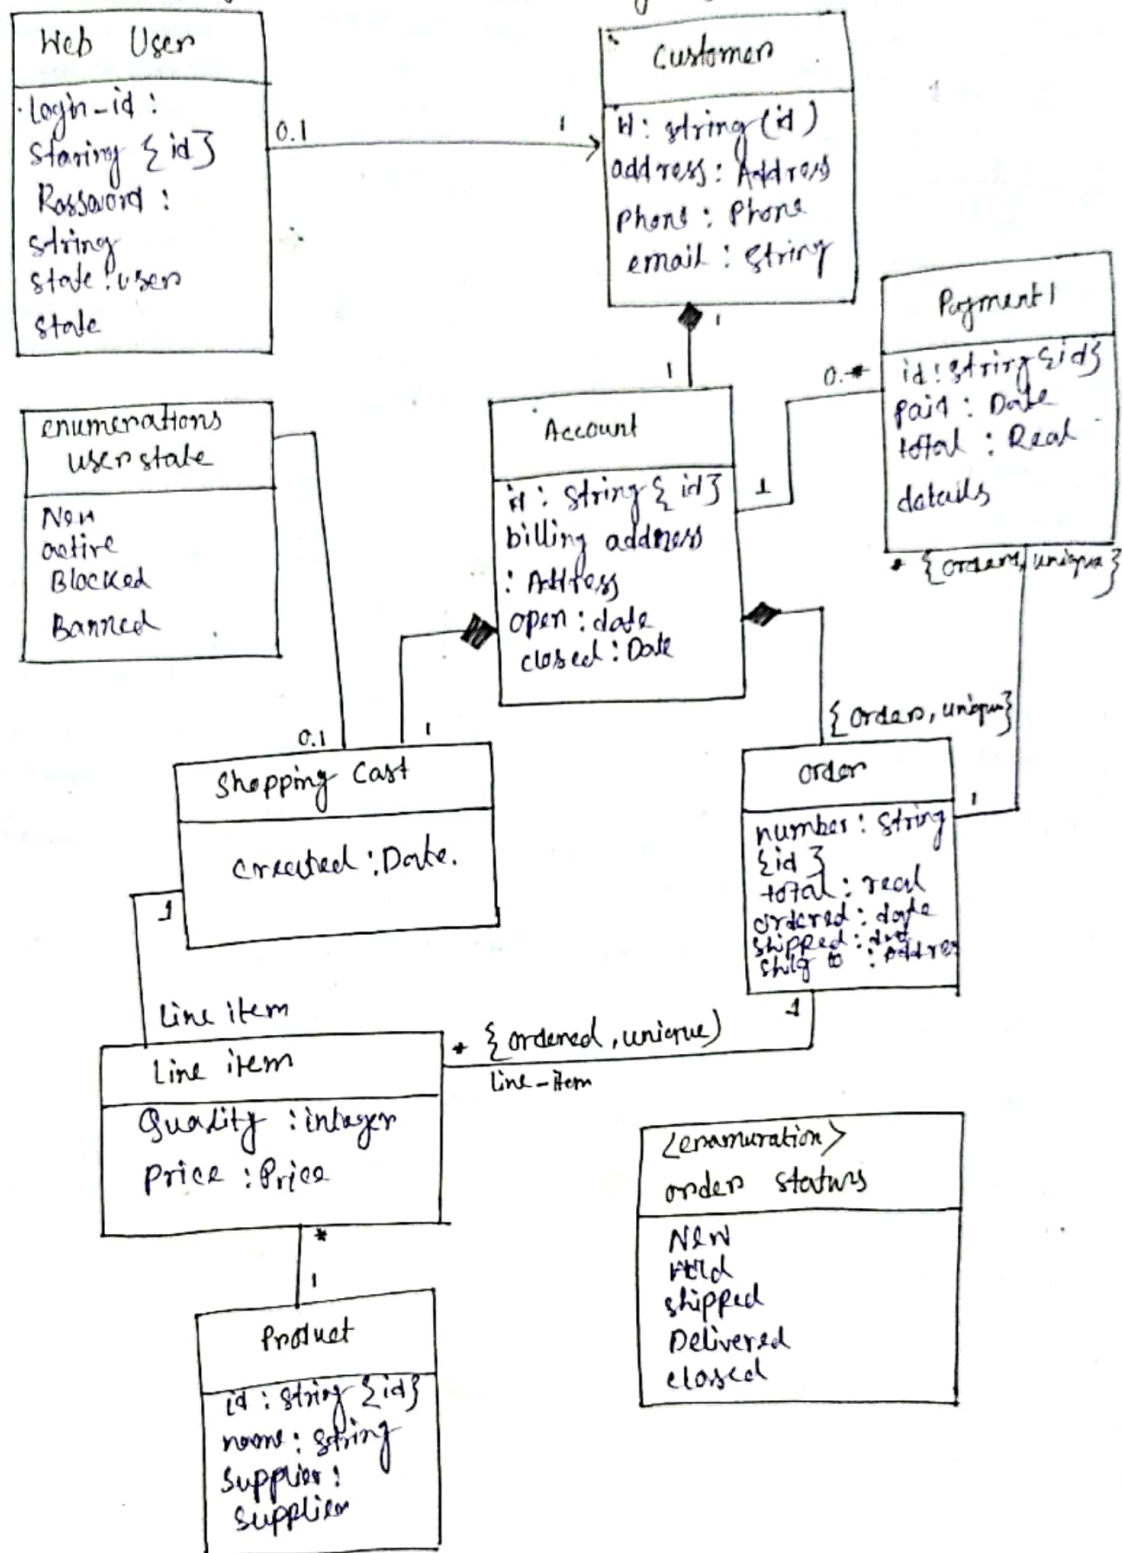 Web User
login-id :
Staring {id}
Password :
string
state : user
state
0.1
1
Customer
id : string (id)
address : Address
Phone : Phone
email : string
1
1
Payment
id : string {id}
paid : Date
total : Real
datails
0.*
1
* {orders, unique}
enumerations
user state
New
active
Blocked
Banned
Account
id : string { id}
billing address
: Address
open : date
closed : Date
0.1
1
{ order, unique}
Shopping Cast
created : Date.
1
order
number : String
{id }
total : real
ordered : date
shipped :
: Addres
1
1
Line item
* { ordered , unique)
line-item
Line item
Quality : integer
Price : Price
*
1
Product
id : string {id}
name : string
Supplier :
Supplier
<enamuration>
order status
New
Hold
shipped
Delivered
closed